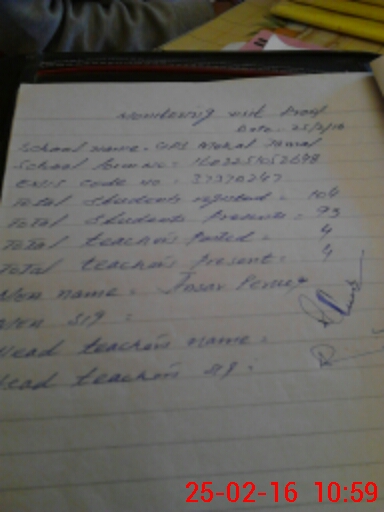 Monitoring visit Proof
Date. 25/2/16
School name. GPS Mohal Jamal
School form No: 1603251052698
EMIS code no: 37370247
Total students reported = 104
Total students present = 93
Total teachers Posted = 4
Total teachers present: 4
name:
sig:
Head teacher's name.
Head teacher's sig.
25-02-16 10:59